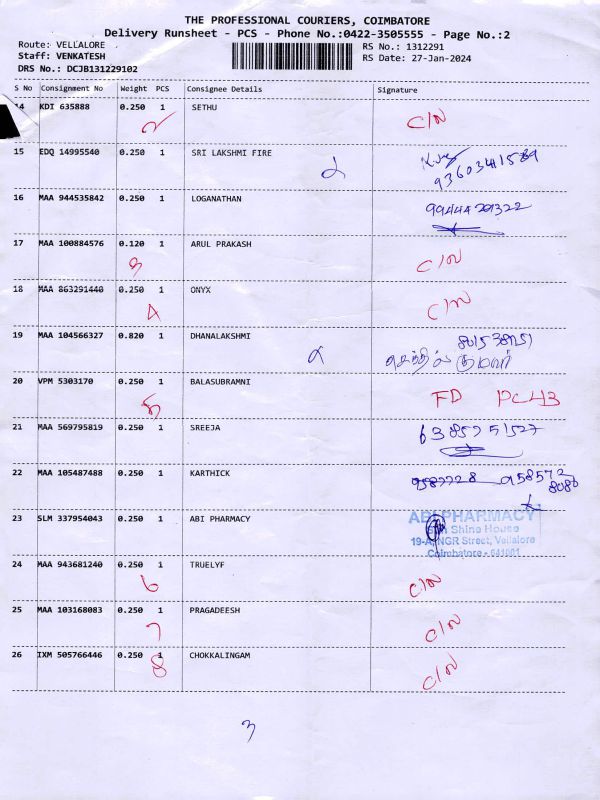 THE PROFESSIONAL COURIERS, COIMBATORE
Delivery Runsheet - PCS - Phone No.:0422-3505555 - Page No.:2
Route: VELLALORE RS No.: 1312291
Staff: VENKATESH RS Date: 27-Jan-2024
DRS No.: DCJB131229102
S No Consignment No Weight PCS Consignee Details Signature
14 KDI 635888 0.250 1 SETHU
2 C/N
15 EDQ 14995540 0.250 1 SRI LAKSHMI FIRE
9360341589
16 MAA 944535842 0.250 1 LOGANATHAN
17 MAA 100884576 0.120 1 ARUL PRAKASH
3 C/N
18 MAA 863291440 0.250 1 ONYX
4 C/N
19 MAA 104566327 0.820 1 DHANALAKSHMI
செந்தில் குமார்
20 VPM 5303170 0.250 1 BALASUBRAMNI
5 FD PC43
21 MAA 569795819 0.250 1 SREEJA
22 MAA 105487488 0.250 1 KARTHICK
23 SLM 337954043 0.250 1 ABI PHARMACY
ABI PHARMACY
Shine House
19-A, NGR Street, Vellalore
Coimbatore - 641001
24 MAA 943681240 0.250 1 TRUELYF
6 C/N
25 MAA 103168083 0.250 1 PRAGADEESH
7 C/N
26 IXM 505766446 0.250 1 CHOKKALINGAM
8 C/N
3